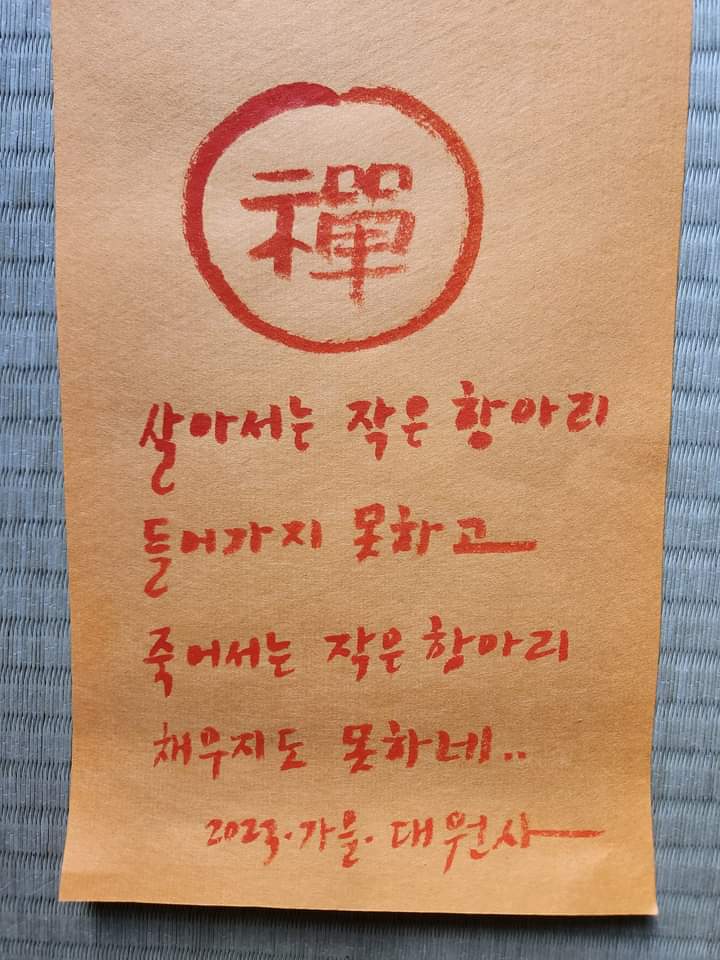 禪
살아서는 작은 항아리
들어가지 못하고
죽어서는 작은 항아리
채우지도 못하네..
2023.가을. 대원사